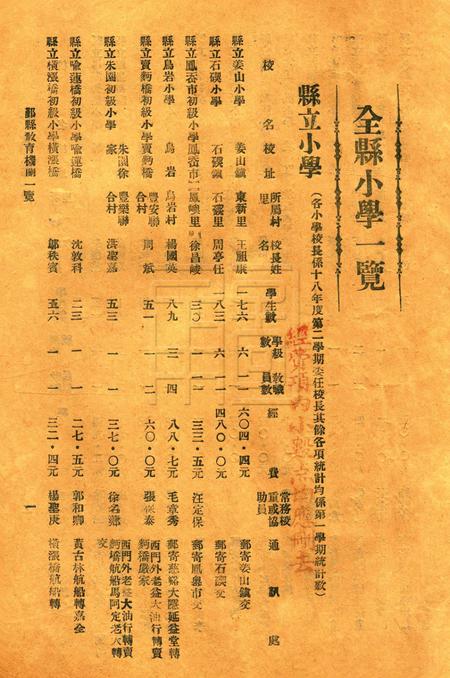 全縣小學一覽
縣立小學（各小學校長係十八年度第二學期委任校長其餘各項統計均係第一學期統計數）
經費項內小數點均應刪去
校名 校址 所屬村里 校長姓名 學生數 學級數 教職員數 經費 常務校董或協助員 通訊處
縣立姜山小學 姜山鎮 東新里 王顯康 一七六 六 一一 六〇四·四元 郵寄姜山鎮交
縣立石碶小學 石碶鎮 石碶里 周亭任 一八三 六 一一 四八〇·〇元 郵寄石碶交
縣立鳳岙市初級小學 鳳岙市 鳳嶼里 徐昌峻 三〇 一 一 三三·五元 汪定保 郵寄鳳岙市交
縣立烏岩小學 烏岩 烏岩村 楊國英 八九 三 四 八八·七元 毛章秀 郵寄慈谿大隱延益堂轉
縣立賣麪橋初級小學 賣麪橋 豐安聯合村 周斌 五一 一 二 六〇·〇元 張保泰 西門外老益大油行轉賣麪橋嚴家
縣立朱園初級小學 朱園徐家 豐樂聯合村 洪聖嘉 五三 一 一 三七·〇元 徐名 西門外老益大油行轉賣麪橋航船馬阿定老大轉交
縣立喩蓮橋初級小學 喩蓮橋 沈敦科 二三 一 一 二七·五元 郭和卿 黃古林航船轉嘉金
縣立橫漲橋初級小學 橫漲橋 鄔秩賓 五六 一 一 三二·四元 楊聖庚 橫漲橋航船轉
鄞縣教育機關一覽
一